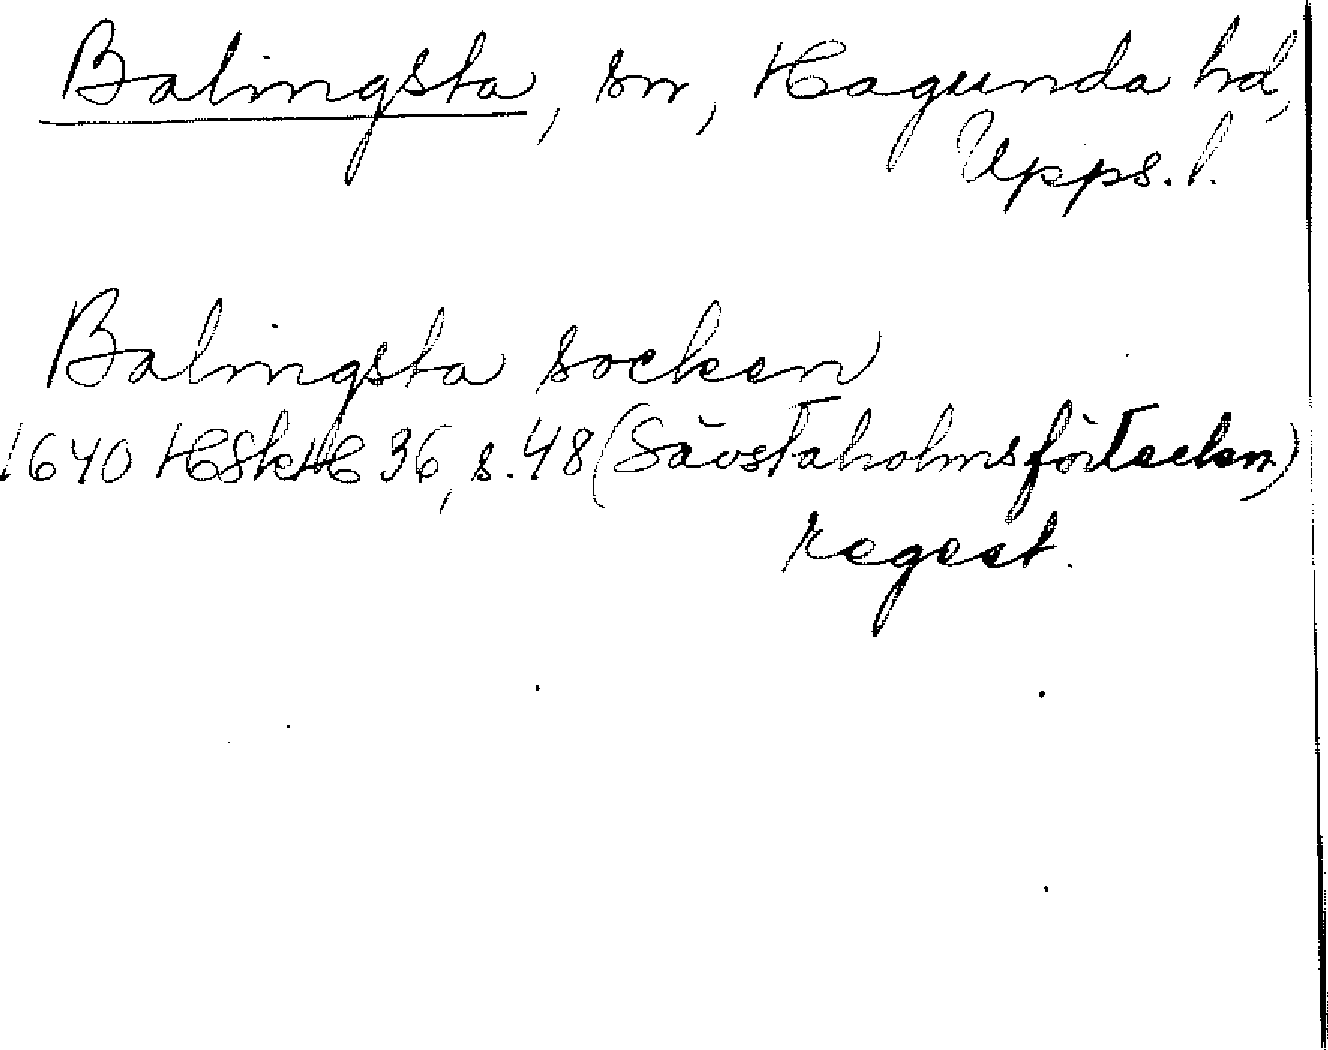 Balingsta, sn, Hagunda hd,
Upps. l.
Balingsta socken
1640 HSkH 36, s. 48 (Sävstaholmsförteckn)
regest.